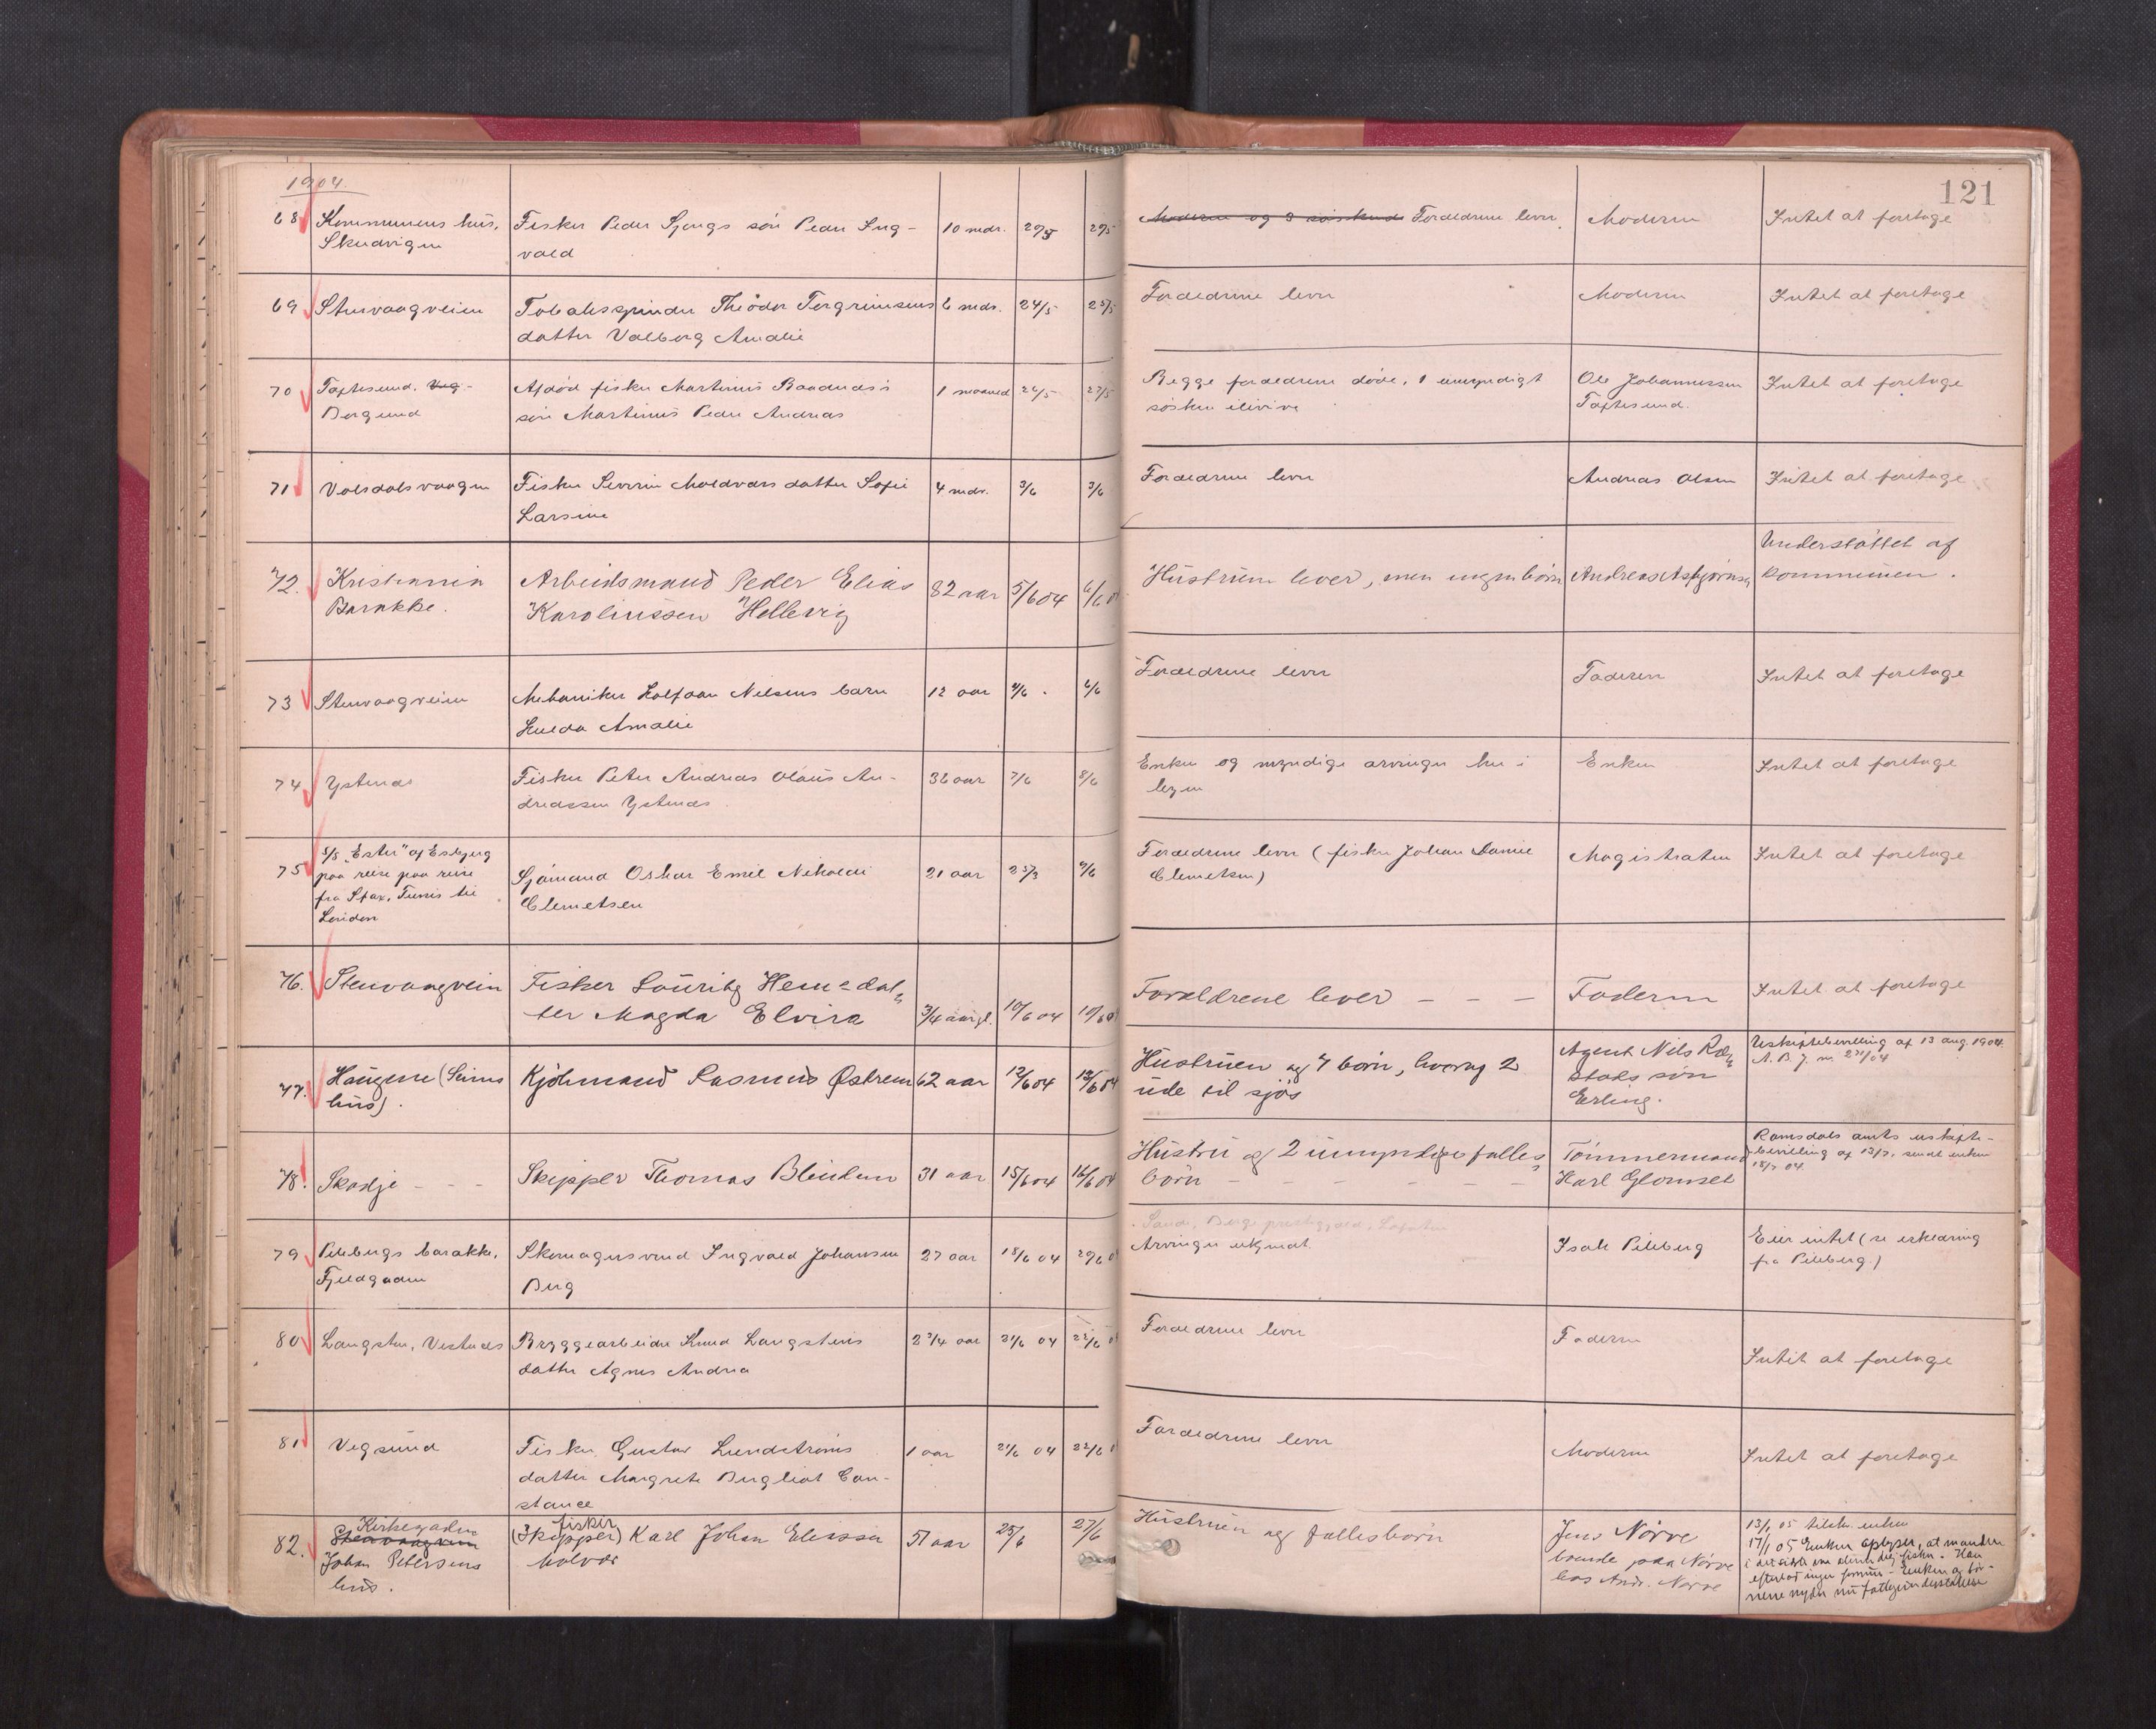 1904.
121
68 Kommunens hus, Fisker Peder Sjongs søn Peder Ing- 10 mdr. 29/5 29/5 Moderen og 3 søskende Forældrene lever. Moderen Intet at foretage
Skudvigen vald
69 Stenvaagveien Tobakspinder Theodor Torgrimsens 6 mdr. 24/5 25/5 Forældrene lever Moderen Intet at foretage
datter Valborg Amalie
70 Toftesund, Veg- Afdød fisker Martinus Baadnæs's 1 maaned 26/5 27/5 Begge forældrene døde, 1 umyndigt Ole Johannessen Intet at foretage
Borgund søn Martinus Peder Andreas søsken ilive Toftesund.
71 Volsdalsvaagen Fisker Severin Moldværs datter Sofie 4 mdr. 3/6 3/6 Forældrene lever Andreas Olsen Intet at foretage
Larsine
Understøttet af
72. Kristiania Arbeidsmand Peder Elias 82 aar 5/6 04 6/6 Hustruen lever, men ingen børn Andreas Asbjørnsen kommunen.
Barakke. Karolinssen Hellevig
73 Stenvaagveien Mekaniker Halfdan Nilsens barn 12 aar 4/6 6/6 Forældrene lever Faderen Intet at foretage
Hulda Amalie
74 Ystenæs Fisker Peter Andreas Olaus An- 36 aar 7/6 8/6 Enken og myndige arvinger her i Enken Intet at foretage
dreassen Ystenæs byen
75 S/S "Ester" af Esbjerg Sjømand Oskar Emil Nikolai 21 aar 23/3 9/6 Forældrene lever (fisker Johan Danie Magistraten Intet at foretage
paa reise paa reise Clemetsen Clemetsen)
fra Sfax, Tunis til
London
76. Stenvaagvein Fisker Lauritz Hem's dat- 3/4 aar gl. 10/6 04 10/6 Forældrene lever - - - Faderen Intet at foretage
ter Magda Elvira
77. Haugene (Seims Kjøbmand Rasmus Østrem 62 aar 12/6 04 12/6 04 Hustruen og 7 børn, hvorav 2 Agent Nils Røb- Uskiftebevilling af 13 aug. 1904.
hus). ude til sjøs staks søn A. B. J. nr. 271/04
Erling.
78. Skodje - - - Skipper Thomas Blindem 31 aar 15/6 04 16/6 04 Hustru og 2 umyndige fælles- Tømmermand Romsdals amts uskifte-
børn - - - - - - Karl Glomset bevilling af 13/7, sendt enken
18/7 04.
79 Pilebergs barakke, Skomagersvend Ingvald Johansen 27 aar 18/6 04 20/6 Sand, Bergs prestegjæld, Lofoten Isak Pileberg Eier intet (se erklæring
Fjeldgaden Berg Arvinger ukjendt. fra Pileberg)
80 Langsten, Vestnes Bryggearbeider Knud Langstens 2 3/4 aar 21/6 04 22/6 Forældrene lever Faderen Intet at foretage
datter Agnes Andrea
81 Vegsund Fisker Gustav Lundstrøms 1 aar 21/6 04 22/6 Forældrene lever Moderen Intet at foretage
datter Margrete Bergliot Con-
stance
82. Kirkegaden fisker 25/6 27/6 Hustruen og fællesbørn Jens Nørve 13/1 05 tilsk. enken
Stenvaagveien (Skipper) Karl Johan Eliassen 51 aar boende paa Nørve 17/1 05 Enken oplyser, at manden
Johan Petersens Molvær hos Andr. Nørve i det sidste var almindelig fisker. Han
hus. efterlod ingen formue - Enken og bør-
nene nyder nu fattigunderstøttelse